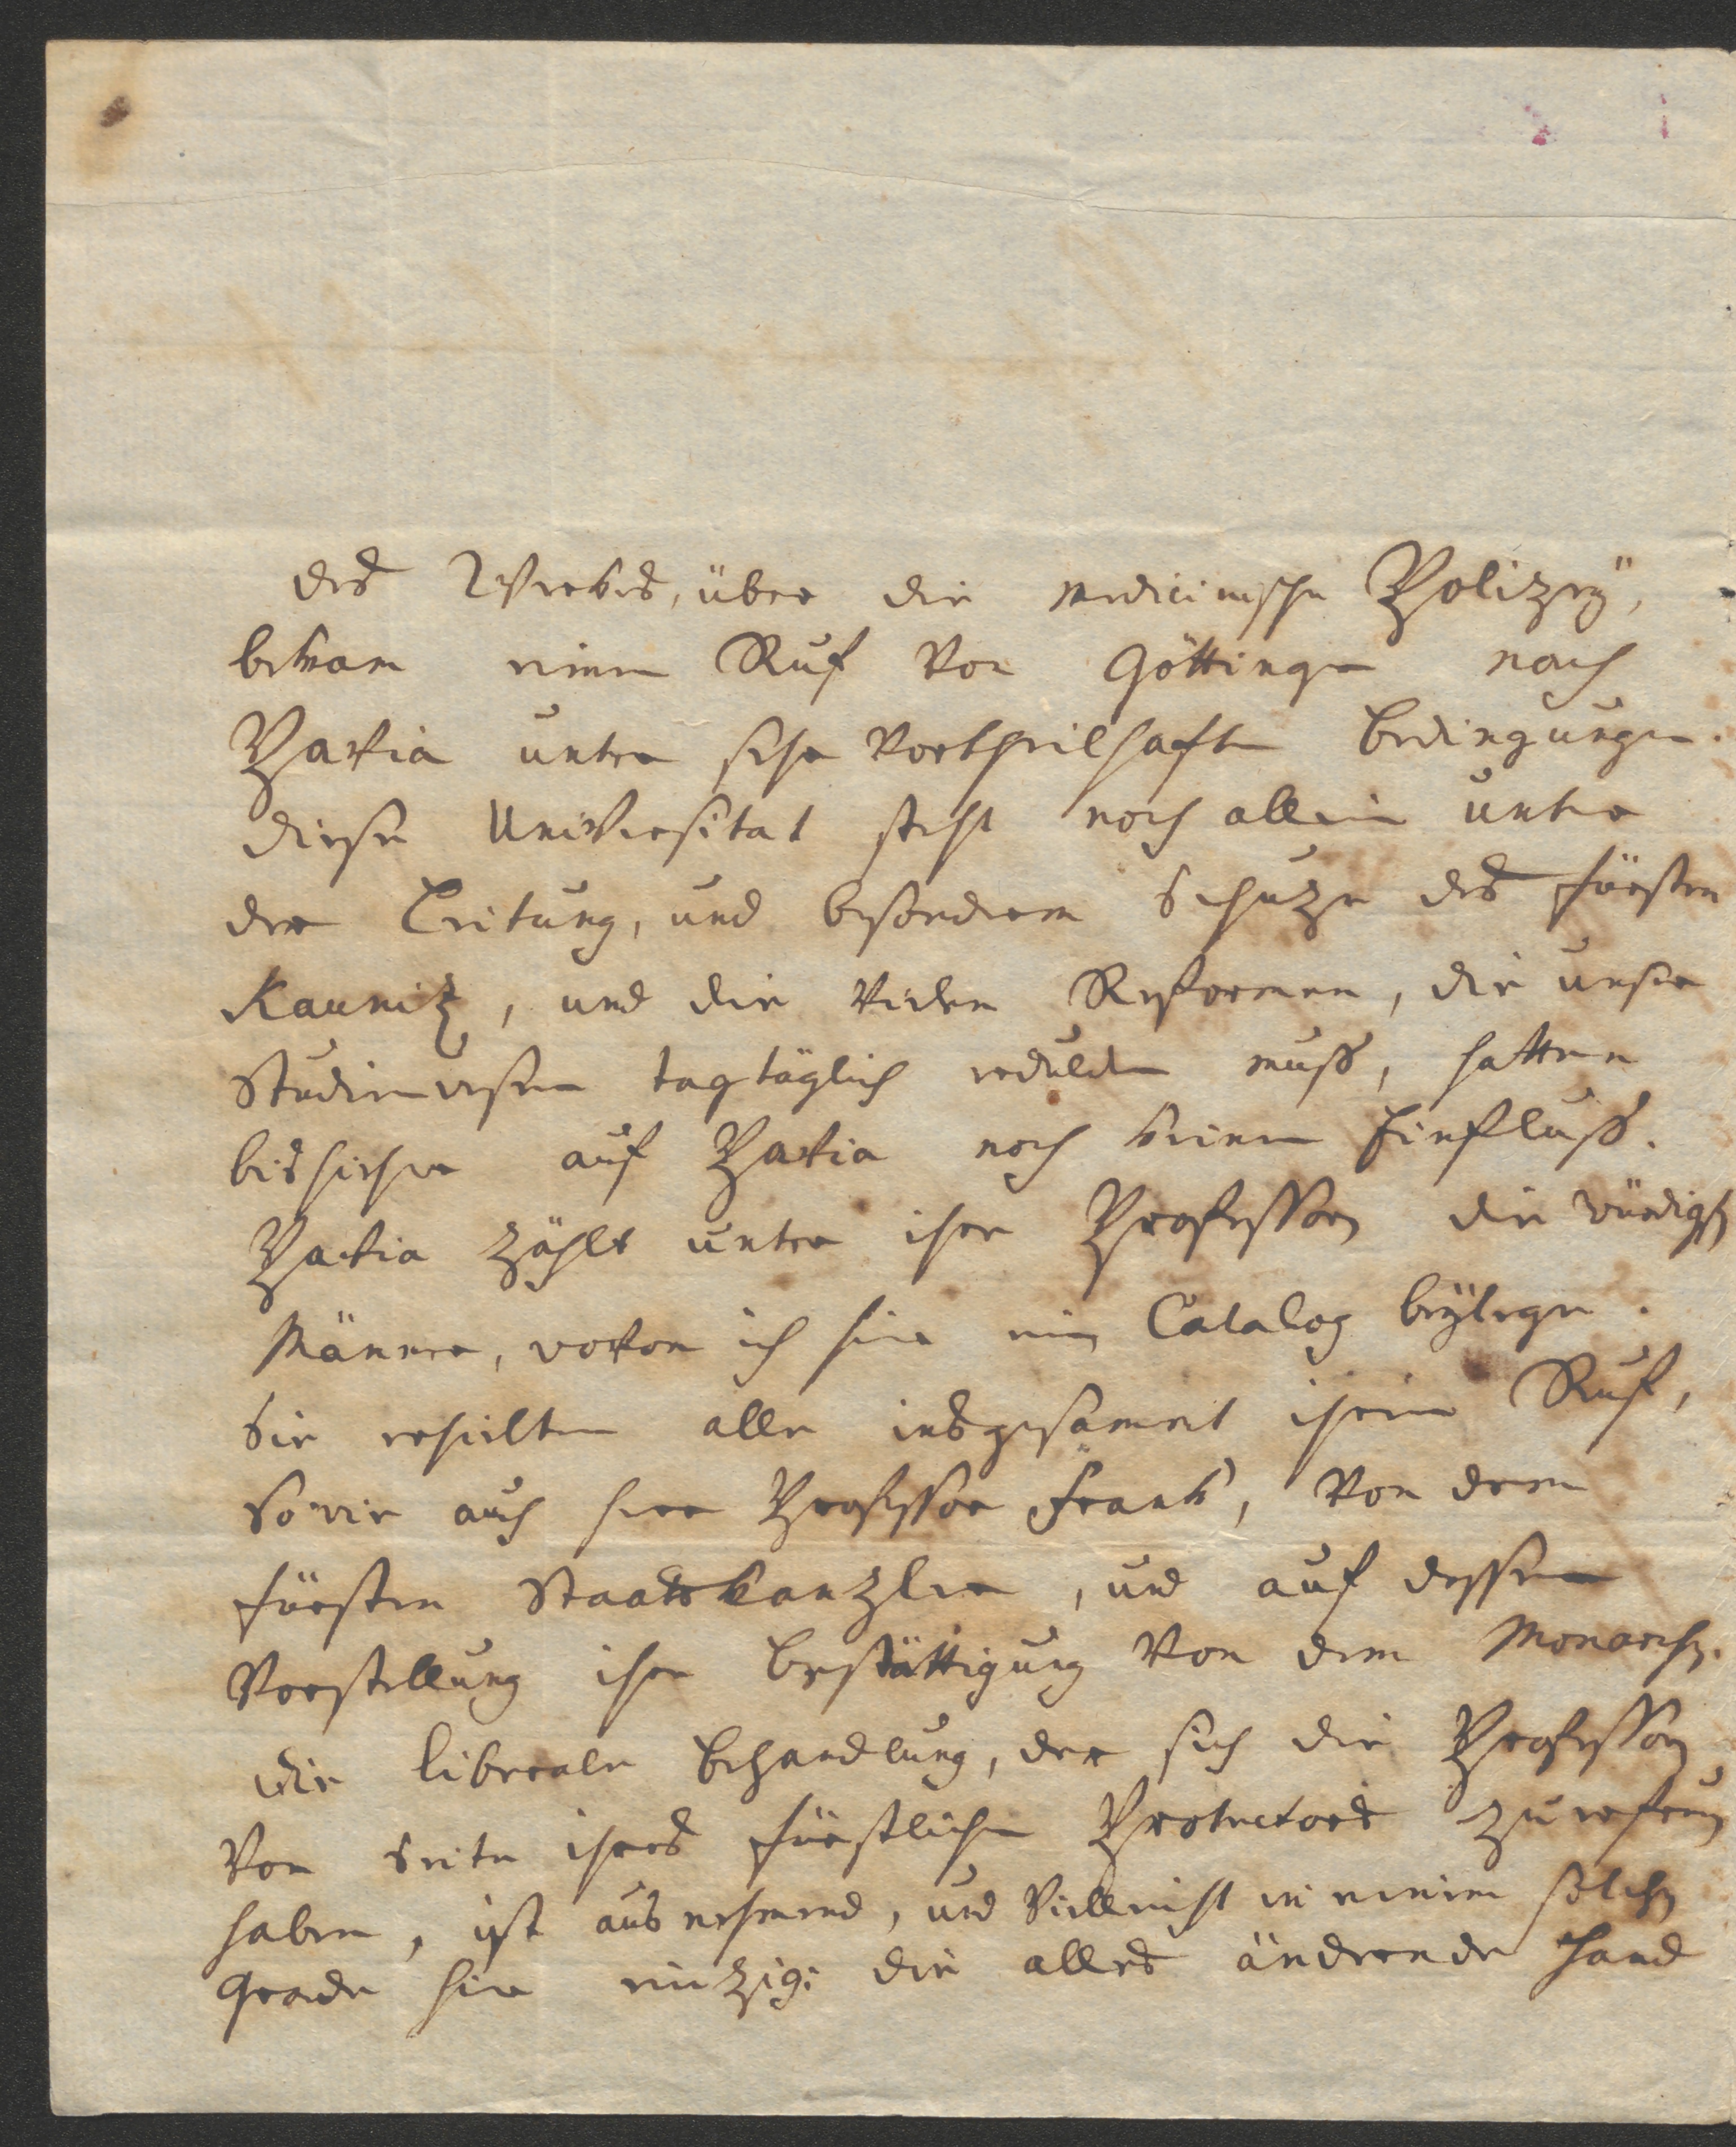 des Werkes, über die medicinische Polizey,
bekam einen Ruf von Göttingen nach
Pavia unter sehr vortheilhaften Bedingungen.
diese Universitat steht noch allein unter
der Leitung, und besonderem Schuze des Fürsten
Kaunitz, und die vielen Reformen, die unser
Studienwesen tagtäglich erdulden muß, hatten
bishieher auf Pavia noch keinen Einfluß.
Pavia zählt unter ihre Professorn die würdigstn
Männer, wovon ich hier ein Catalog beylege.
Sie erhielten alle insgesammt ihren Ruf,
so wie auch herr Professor Frank, von dem
Fürsten Staatskanzler, und auf dessen
Vorstellung ihre Bestättigung von dem Monarchn.
die liberale Behandlung, der sich die Professorn
von Seite ihres fürstlichen Protectors zu erfreuen
haben, ist ausnehmend, und vielleicht in einem solchn
Grade hier einzig: die alles ändernde Hand